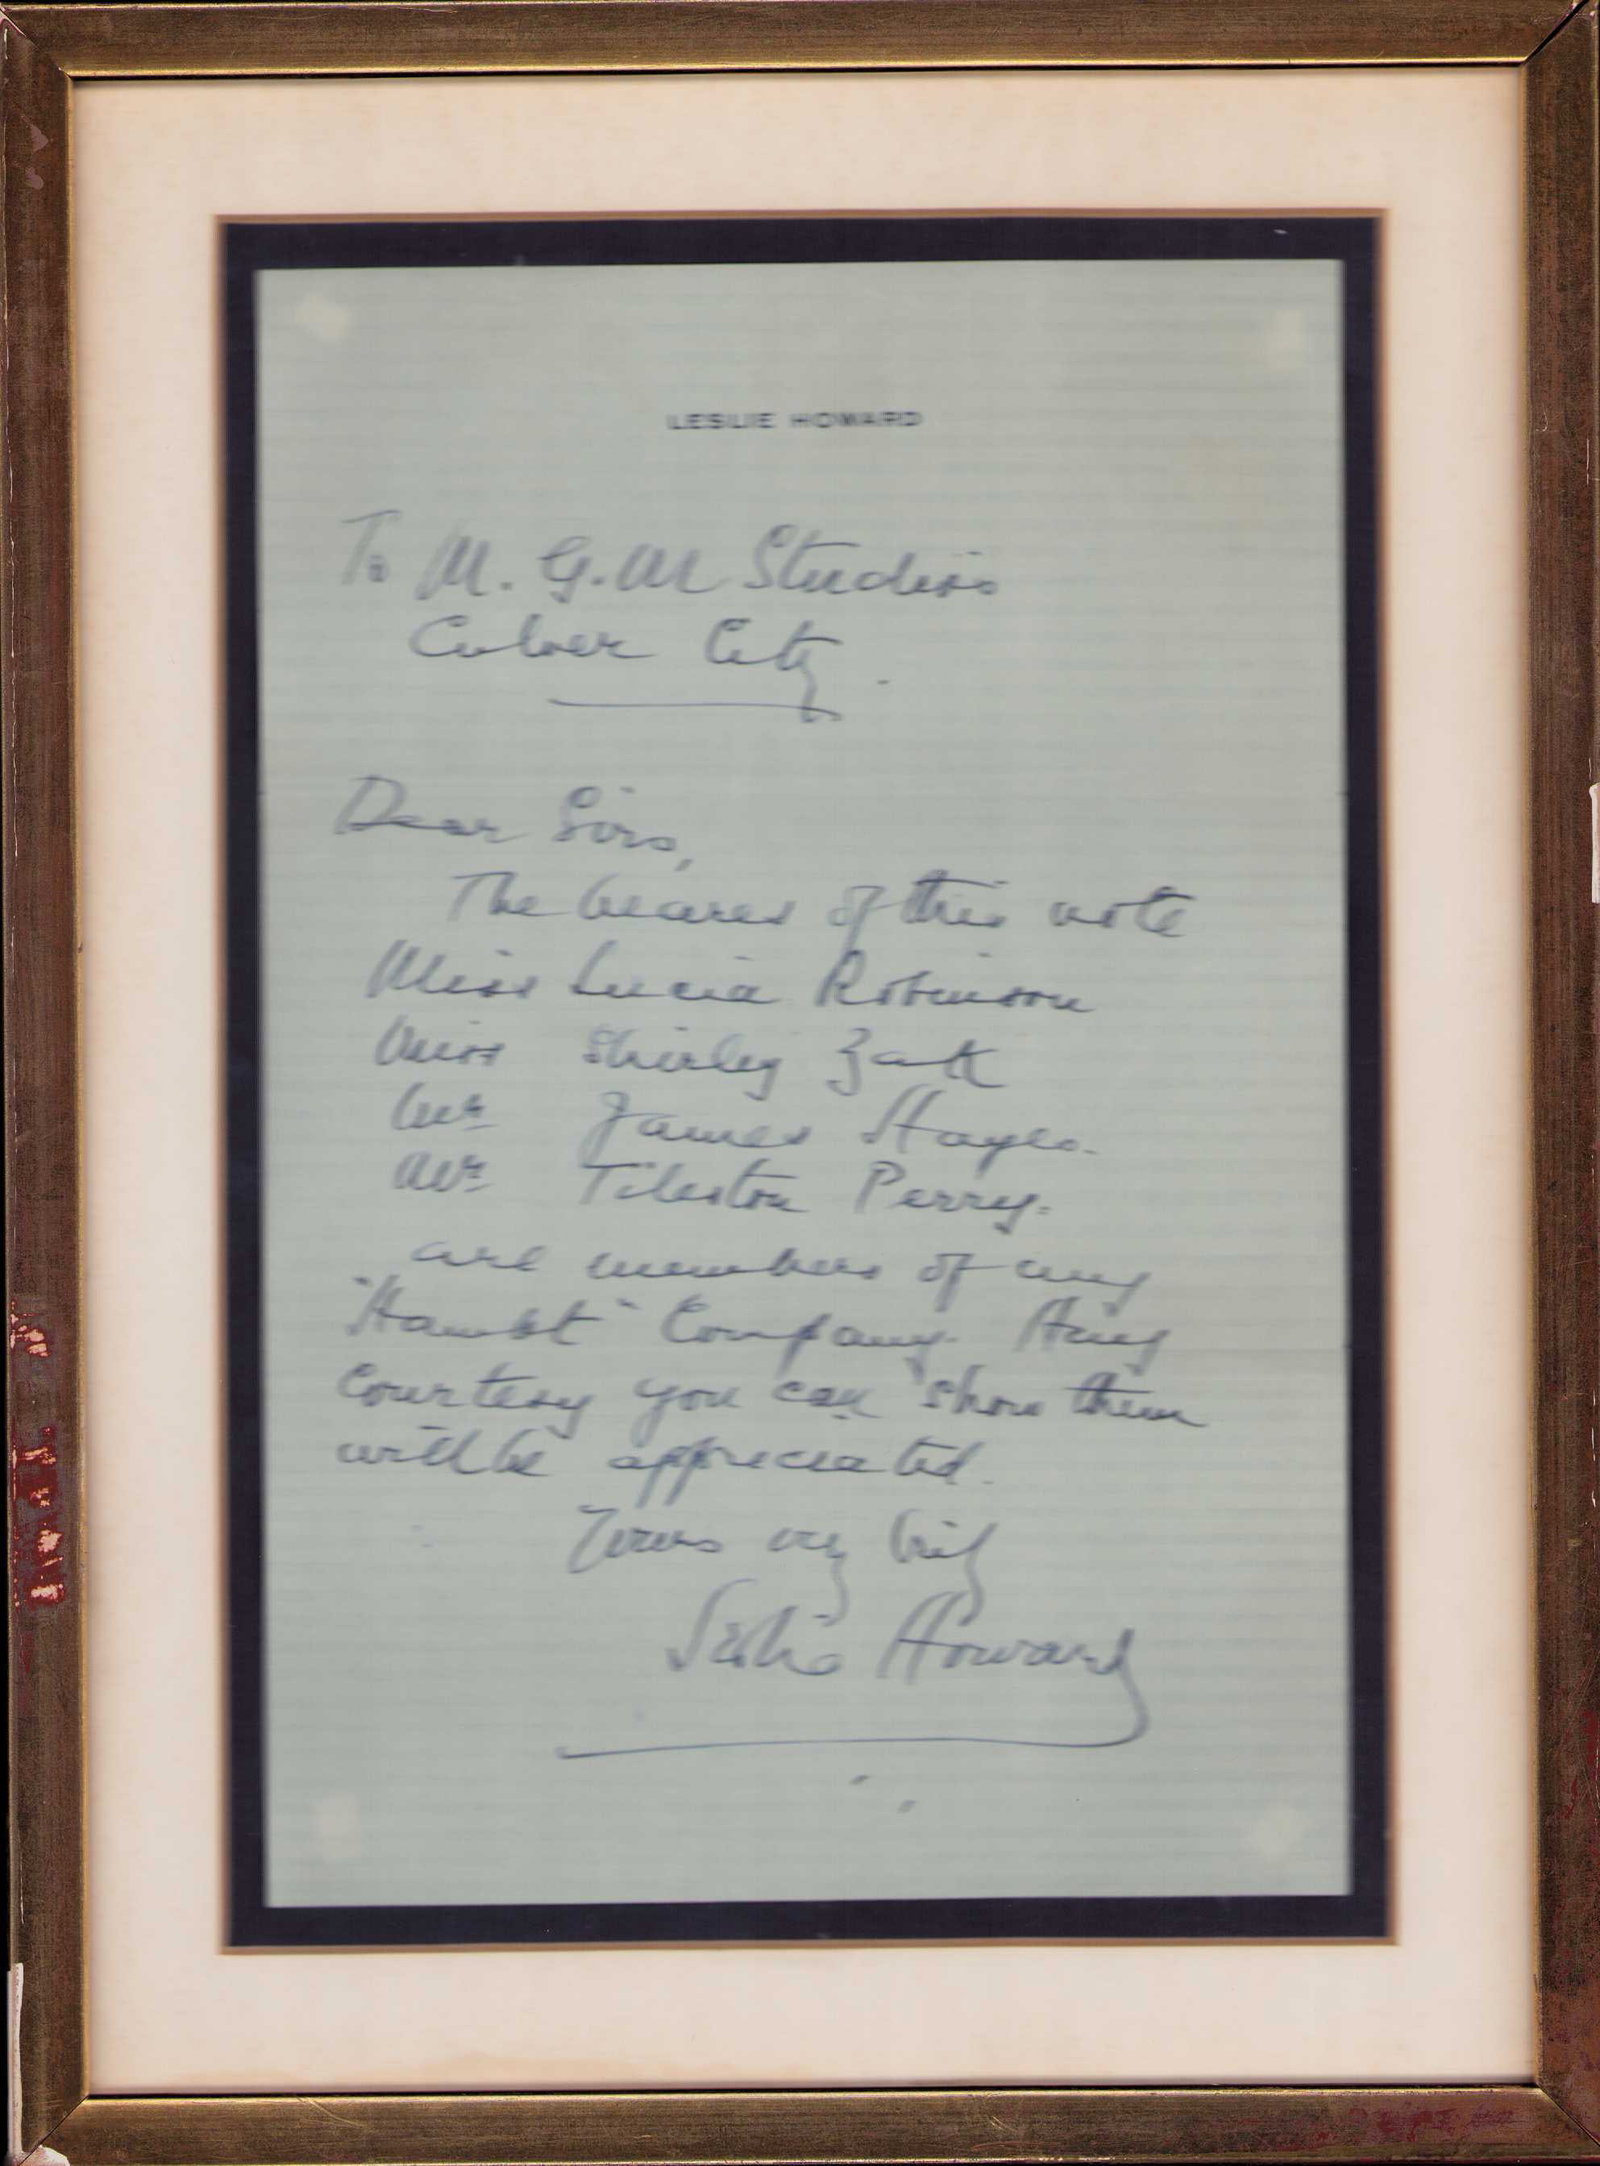 LESLIE HOWARD
To M.G.M Studios
Culver City.
Dear Sirs,
The bearers of this note
Miss Lucia Robinson
Miss Shirley
Mr James Hayes.
Mr Tileston Perry.
are members of my
"Hamlet" Company. Any
courtesy you can show them
will be appreciated.
Yours very truly
Leslie Howard